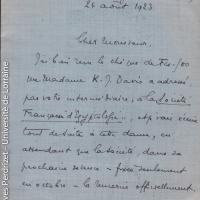 24 août 1923
Cher Monsieur,
J'ai bien reçu le chèque de Frs. 100
que Madame K. J. Davis a adressé,
par votre intermédiaire, à la Société
Française d'Égyptologie,
tout de suite à cette dame, en
attendant que la Société, dans sa
prochaine séance - fixée seulement
en octobre - la remercie officiellement.
ves Perdrizet - Université de Lorraine